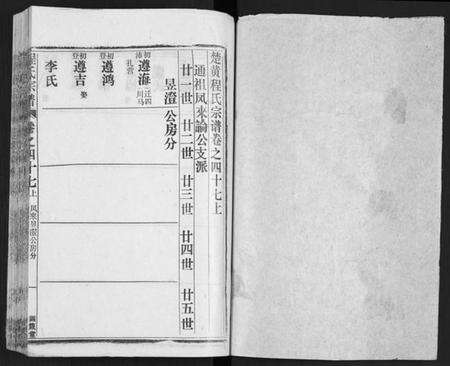 楚黄程氏宗谱卷之四十七上
通祖凤来諭公支派
廿一世 廿二世 廿三世 廿四世 廿五世
昱澄公房分
初沛 遵海 迁四川马
礼营
初登 遵鸿
初登 遵吉 娶
李氏
程氏宗谱 卷之四十七上 凤来昱澄公房分 一